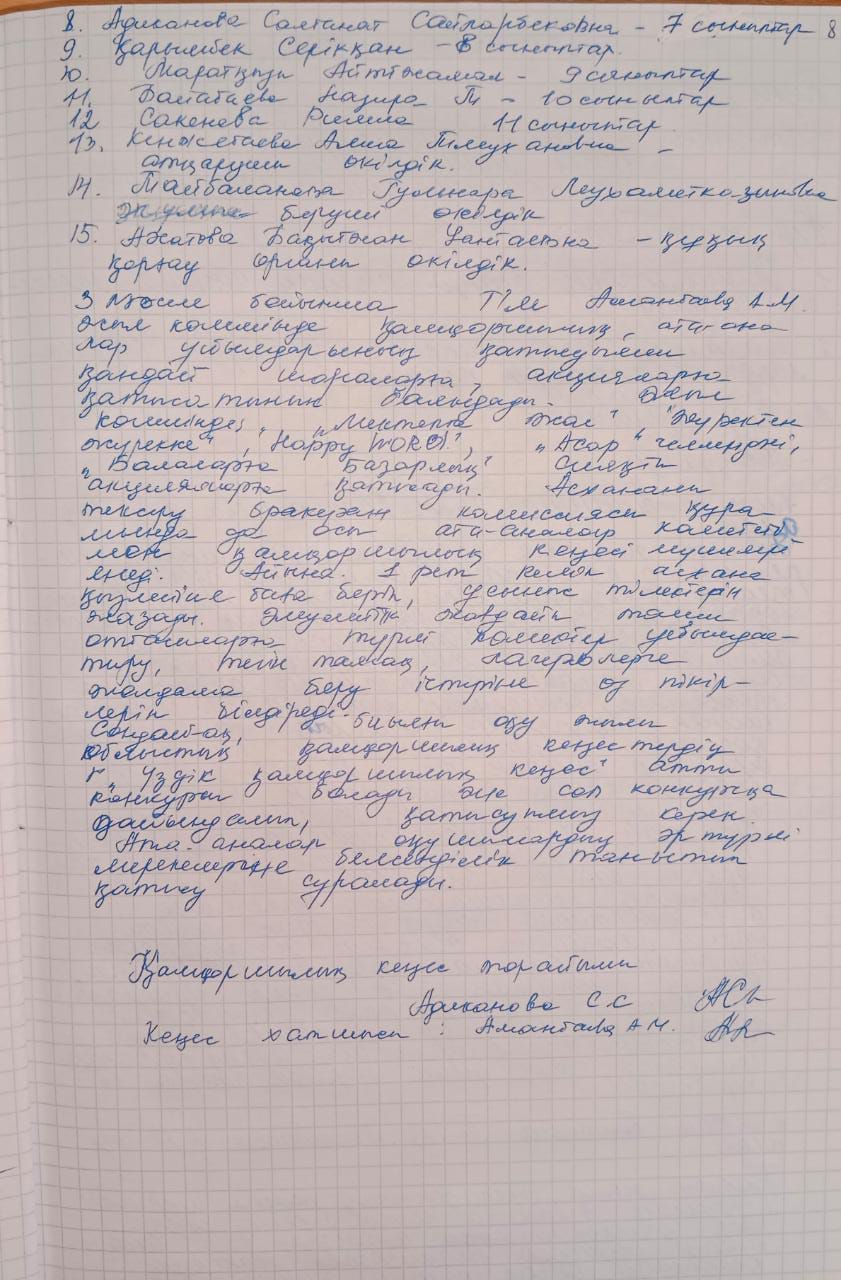 8. Адиканова Салтанат Сайларбековна - 7 сыныптар 8
9. Қарымбек Серікқан - 8 сыныптар.
10. Маратқызы Айтжамал - 9 сыныптар
11. Балабаева Назира Т - 10 сыныптар
12 Сакенова Римма 11 сыныптар.
13. Кенжетаева Алма Тілеухановна -
атқарушы өкілдік.
14. Майбаланова Гулнара Мухаметказиновна
беруші өкілдік
15. Ахатова Бақытжан - құқық
қорғау органы өкілдік.
3 мәселе бойынша ТІМ Амантаева А.М.
жыл көлемінде қамқоршылық, ата-ана
лар ұйымдарының қатысуымен
қандай шараларға, акцияларға
қатысатынын баяндады. Жыл
көлемінде, "Мектепке жол" "Жүректен
жүрекке", "Happy WORLD", "Асар" челленджі,
"Балаларға базарлық" сияқты
акцияларға қатысады. Асхананы
тексеру бракераж комиссиясы құра
мында да осы ата-аналар комитеті
мен қамқоршылық кеңесі мүшелері
енеді. Айына 1 рет келіп асхана
қызметіне баға беріп, ұсыныс тілектерін
жазады. Әлеуметтік жағдайы төмен
отбасыларға түрлі көмектер ұйымдас-
тыру, тегін тамақ, лагерьлерге
жолдама беру істеріне өз пікір-
лерін білдіреді.
Сондай-ақ, биылғы оқу жылы
облыстық қамқоршылық кеңестердің
"Үздік қамқоршылық кеңес" атты
конкурсы болады және сол конкурсқа
дайындалып, қатысуымыз керек.
Ата-аналар оқушылардың әр түрлі
мерекелеріне белсенділік танытып
қатысу сұралады.
Қамқоршылық кеңес төрайымы
Адиканова С.С
Кеңес хатшысы: Амантаева А.М.